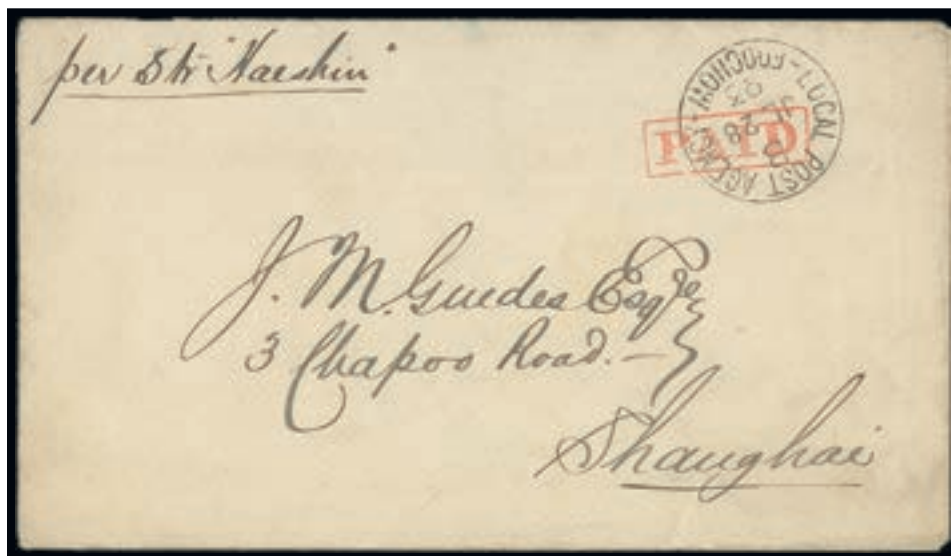 per Str "Haeshin"
LOCAL POST AGENCY - FOOCHOW -
28
PAID
J. M. Guedes Esqre
3 Chapoo Road. —
Shanghai